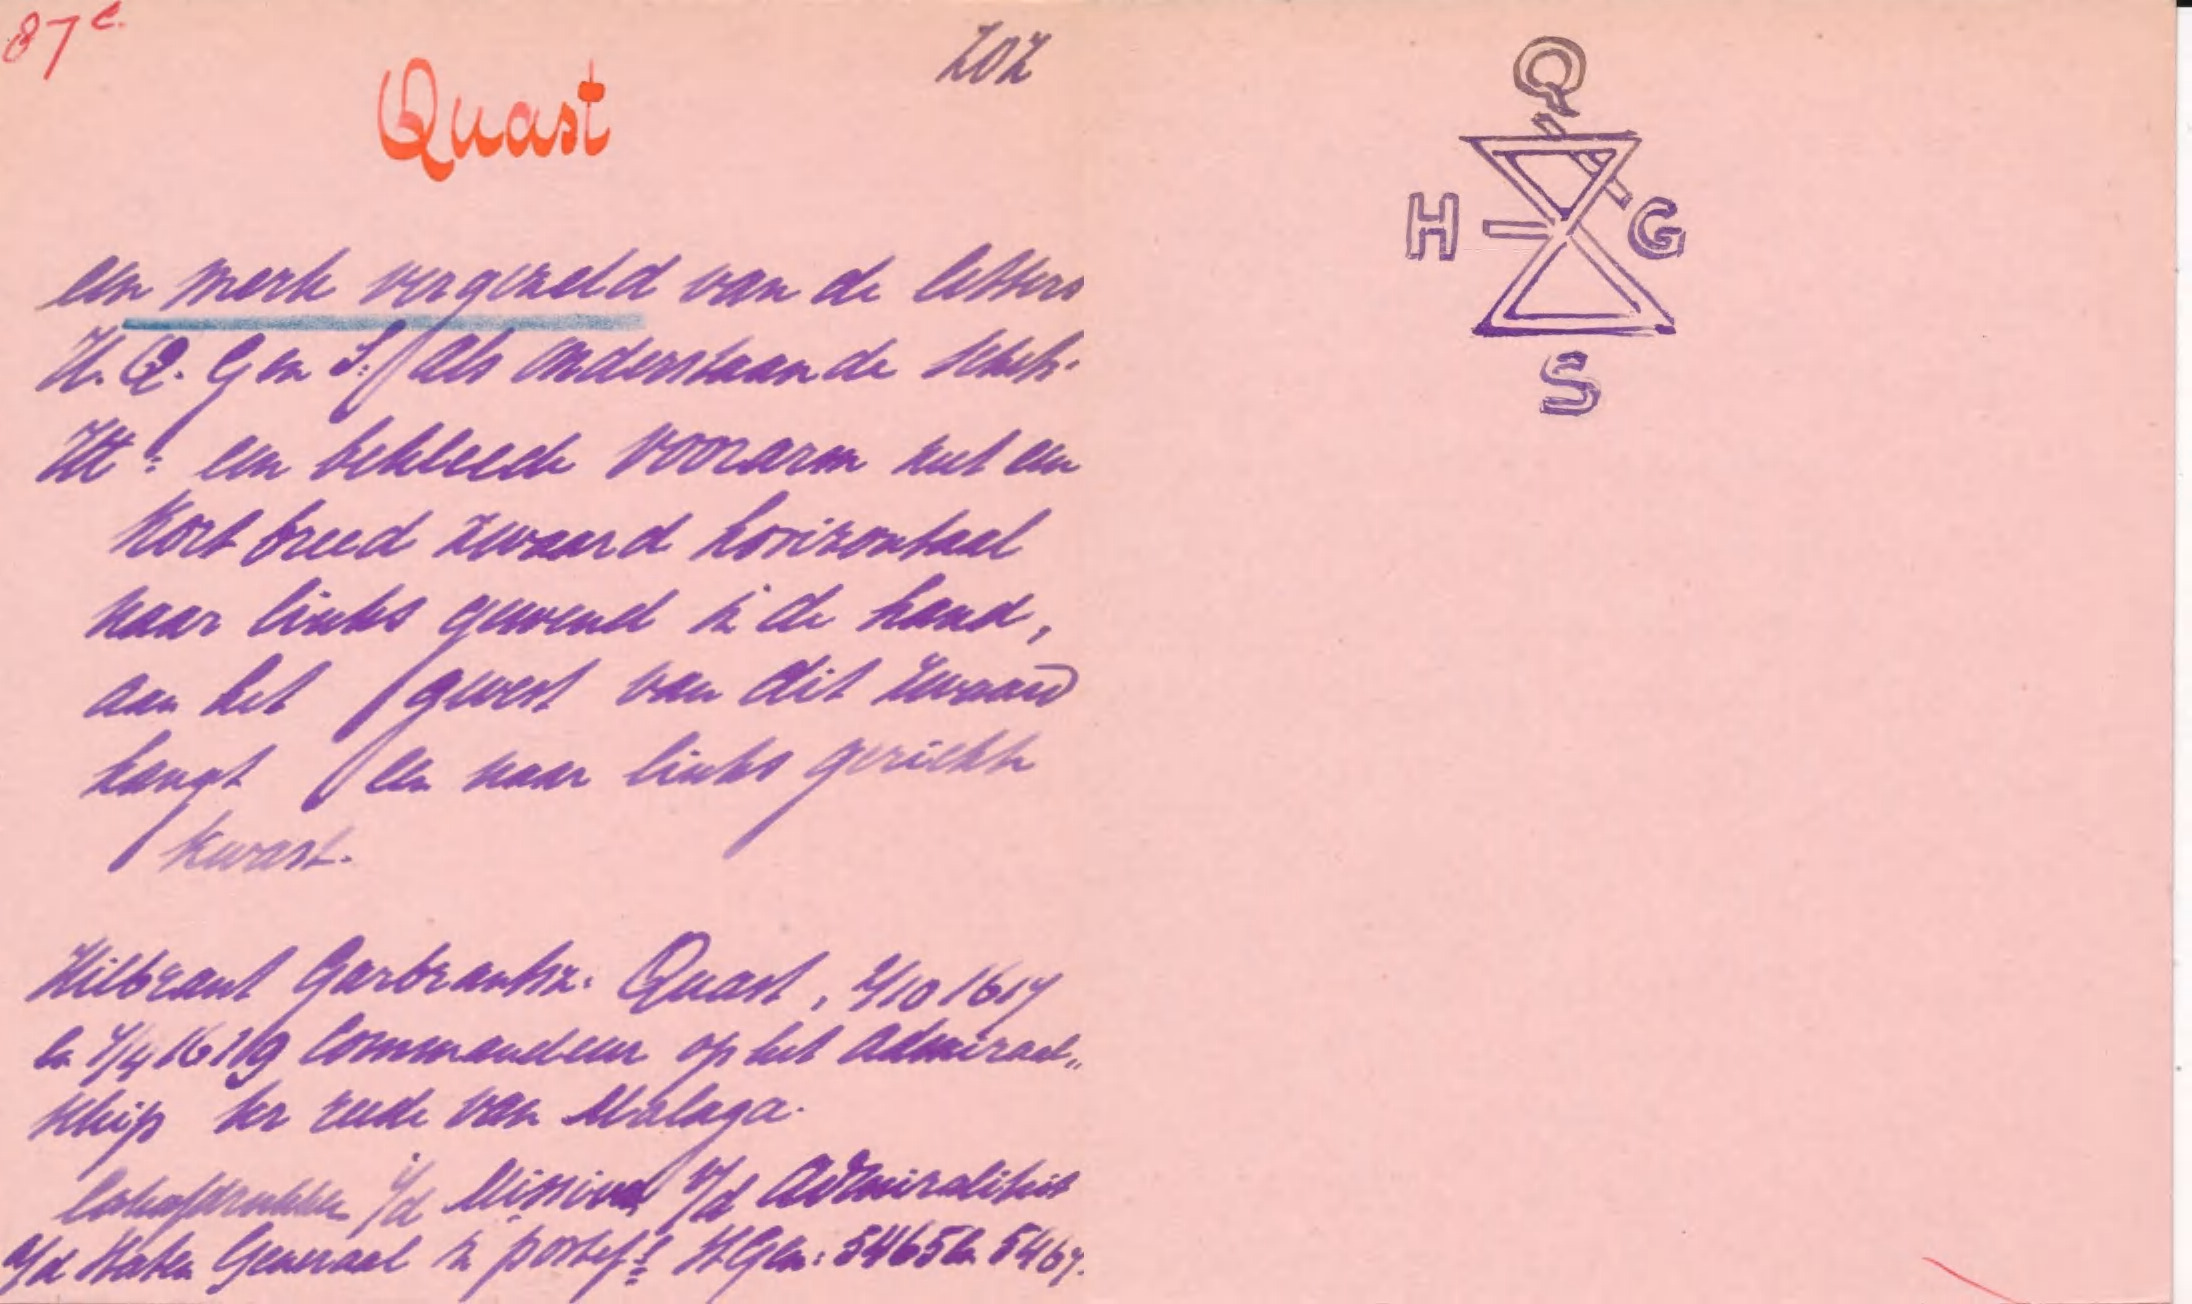 87 c.
Quast
202
een merk vergezeld van de letters
H. Q. G en S. als onderstaande schets.
een bekleede voorarm met een
kort breed zwaard horizontaal
naar links gewend in de hand,
aan het gevest van dit zwaard
hangt een naar links gerichte
kwast.
Hilbrant Garbrantsz. Quast, 2/10 1617
en 7/4 1619 Commandeur op het Admiraal„
schip ter reede van Malaga.
Lakafdrukken i/d Missiven v/d Admiraliteit
a/d Staten Generaal in portefs StGen: 5465 en 5467.
Q
H G
S